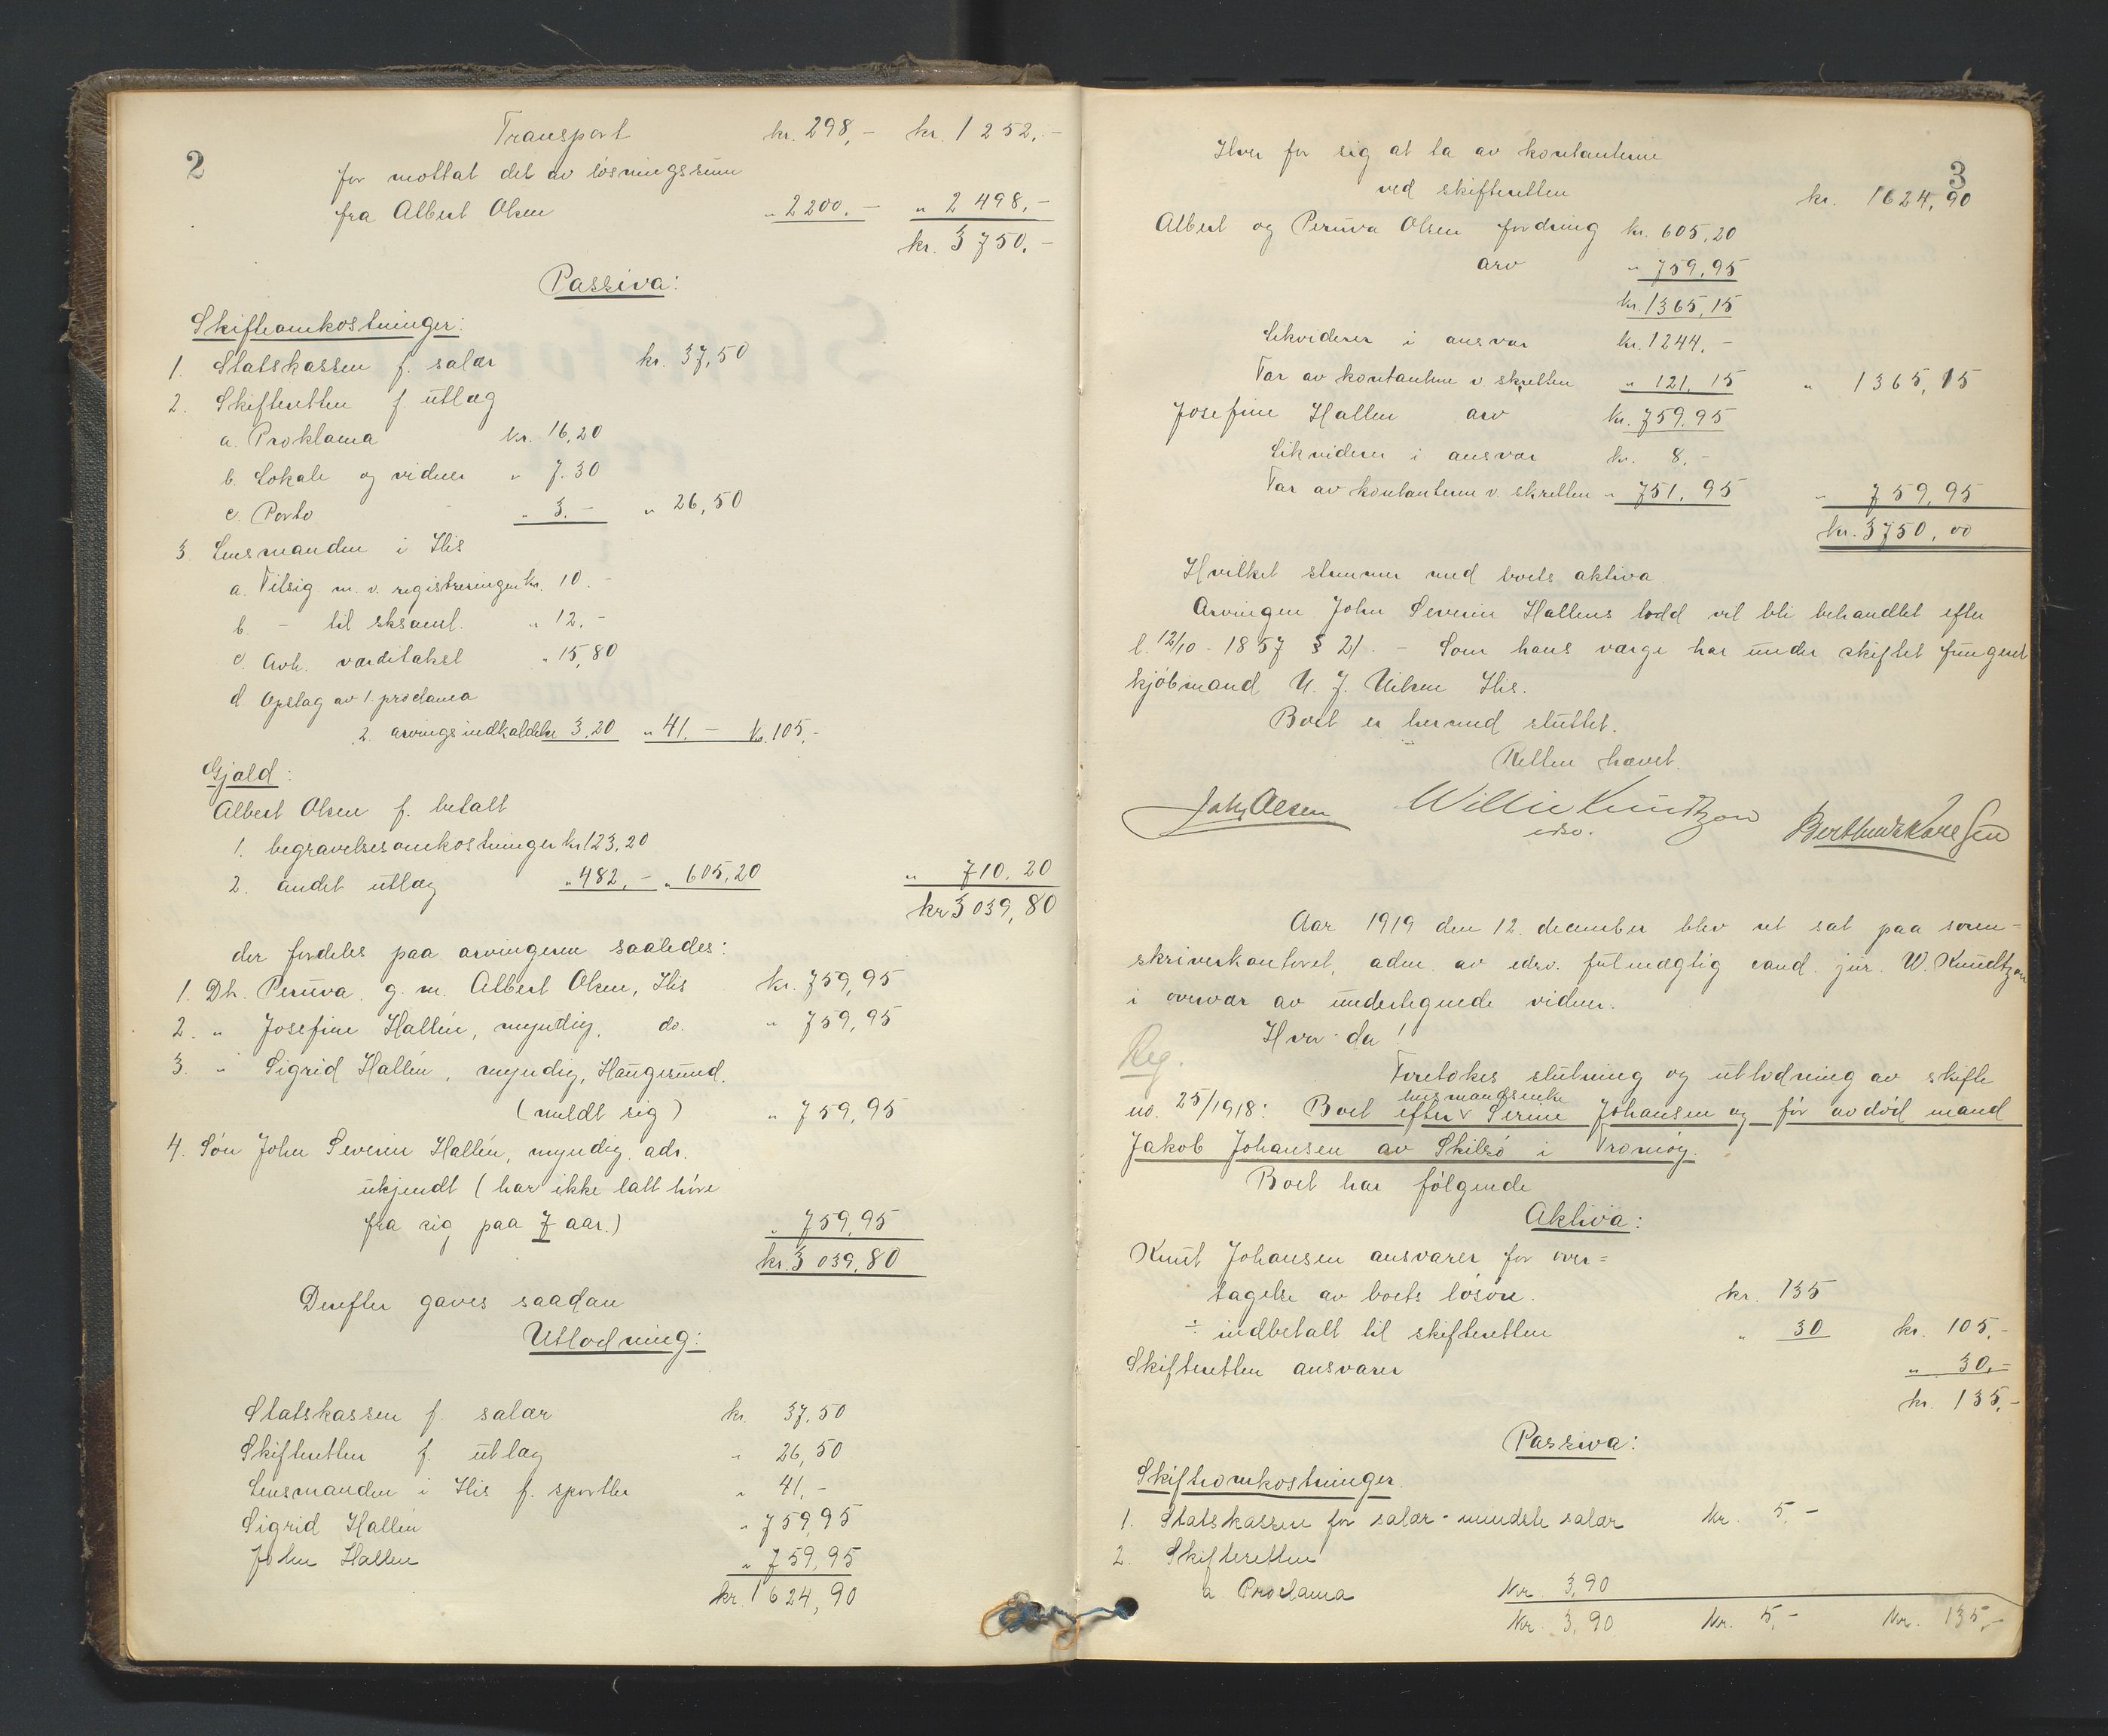 2
Transport kr. 298,- kr. 1252.-
for mottat del av løsningssum
fra Albert Olsen " 2200.- " 2498,-
kr. 3750.-
Passiva:
Skifteomkostninger:
1. Statskassen f. salær kr. 37,50
2. Skifteretten f utlæg
a. Proklama kr. 16,20
b. Lokale og vidner " 7.30
c. Porto " 3.- " 26,50
3 Lensmanden i His
a. Tilsig. m. v. registreringen kr. 10.-
b. - til sksaml. " 12.-
c. Avh. værditakst " 15,80
d Opslag av 1. proclama
2. arvingsindkaldelse 3,20 " 41.- kr. 105,-
Gjæld:
Albert Olsen f. betalt
1. begravelsesomkostninger kr 123,20
2. andet utlæg " 482,- " 605,20 " 710,20
kr 3039,80
der fordeles paa arvingerne saaledes:
1. Dt. Peruva g. m. Albert Olsen, His kr. 759,95
2. " Josefine Hallén, myndig, do. " 759,95
3. " Sigrid Hallén, myndig, Haugesund.
(meldt sig) " 759,95
4. Søn John Severin Hallén, myndig, adr.
ukjendt (har ikke latt høre
fra sig paa 7 aar.) " 759,95
kr. 3039,80
Derefter gaves saadan
Utlodning:
Statskassen f. salær kr. 37,50
Skifteretten f. utlæg " 26,50
Lensmanden i His f. sportler " 41,-
Sigrid Hallén " 759,95
John Hallen " 759,95
kr. 1624,90
3
Hver for sig at ta av kontanterne
ved skifteretten kr. 1624,90
Albert og Peruva Olsen fordring kr. 605,20
arv " 759,95
kr. 1365,15
Likviderer i ansvar kr. 1244.-
Tar av kontanterne v. skretten " 121,15 " 1365,15
Josefine Hallen arv kr. 759,95
Likviderer i ansvar kr. 8,-
Tar av kontanterne v. skretten " 751,95 " 759,95
kr. 3750,00
Hvilket stemmer med boets aktiva.
Arvingen John Severin Hallens lodd vil bli behandlet efter
l. 12/10-1857 § 21. - Som hans værge har under skiftet fungert
kjøbmand N. J. Nilsen His.
Boet er hermed sluttet.
Retten hævet.
Joh. Olsen Willie Knudtzon Berthinius Karelsen
edsv.
Aar 1919 den 12. december blev ret sat paa soren=
skriverkontoret, adm. av edsv. fuldmægtig cand. jur. W. Knudtzon
i overvær av undertegnede vidner.
Hvor da!
Reg.
Foretokes slutning og utlodning av skifte
no. 25/1918: Boet efter lensmandsenke Serine Johansen og før avdød mand
Jakob Johansen av Skilsø i Tromøy.
Boet har følgende
Aktiva:
Knut Johansen ansvarer for over=
tagelse av boets løsøre. kr. 135
÷ indbetalt til skifteretten " 30 kr. 105,-
Skifteretten ansvarer " 30,-
kr. 135,-
Passiva:
Skifteomkostninger.
1. Statskassen for salær - mindste salær kr. 5,-
2. Skifteretten
a Proclama kr. 3,90
kr. 3,90 kr. 5,- kr. 135,-